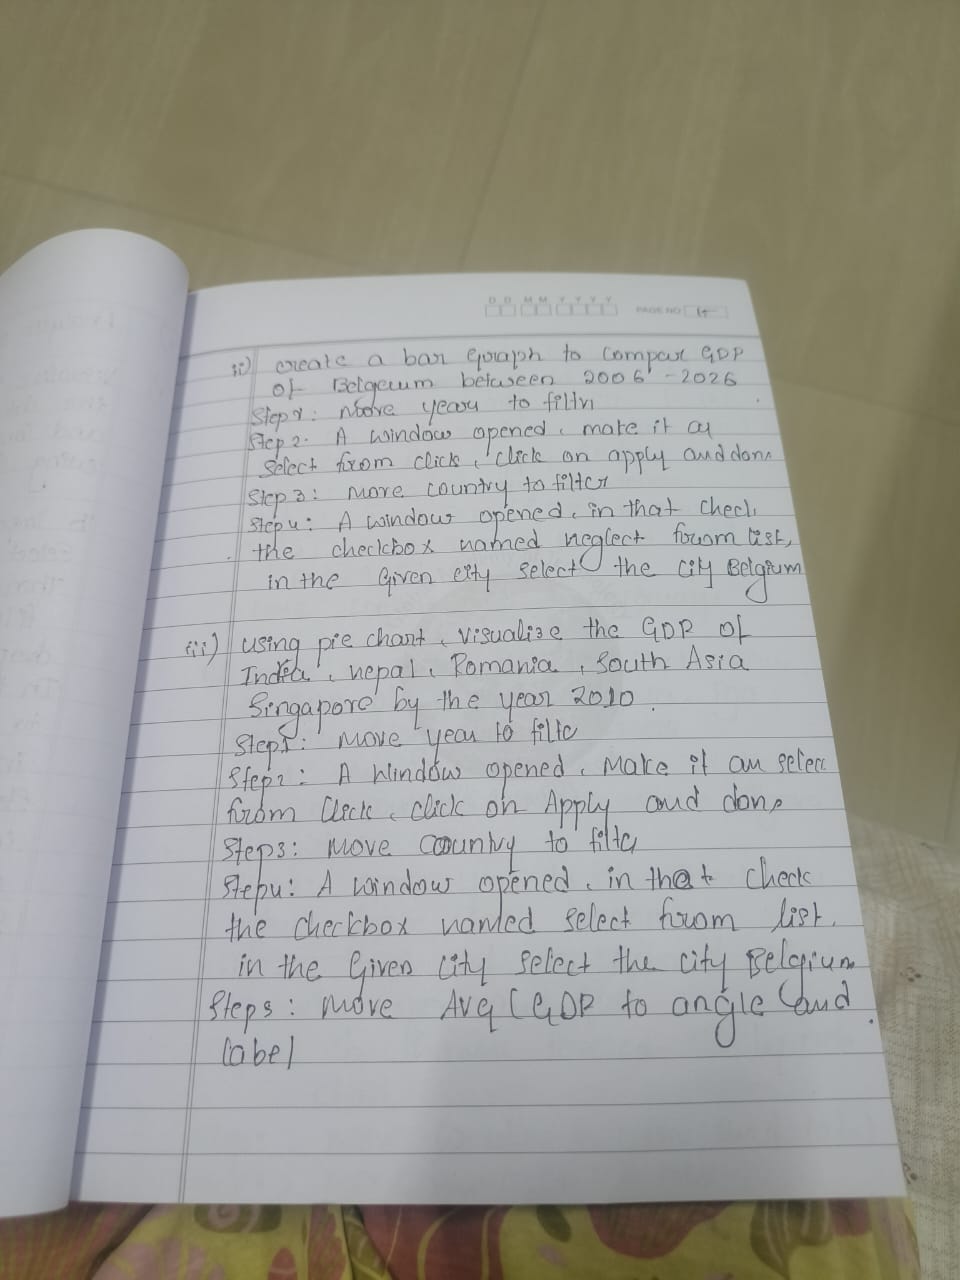 D D M M Y Y Y Y PAGE NO
ii) create a bar Graph to compar GDP
of Belgeium between 2006 - 2026
Step1: Move year to filtr
Step 2. A window opened, make it as
select from click, click on apply and done
Step 3: Move country to filter
Step4: A window opened, in that check
the checkbox named neglect from list,
in the Given city select the city Belgium
iii) using pie chart, visualize the GDP of
India, nepal, Romania, South Asia
Singapore by the year 2010.
Step1: Move year to filte
Step2: A Window opened, Make it as select
from click, click on Apply and done
Step3: Move country to filte
Step4: A window opened, in that check
the checkbox named select from list,
in the Given city select the city Belgium
Step5: Move Avg (GDP to angle and
label